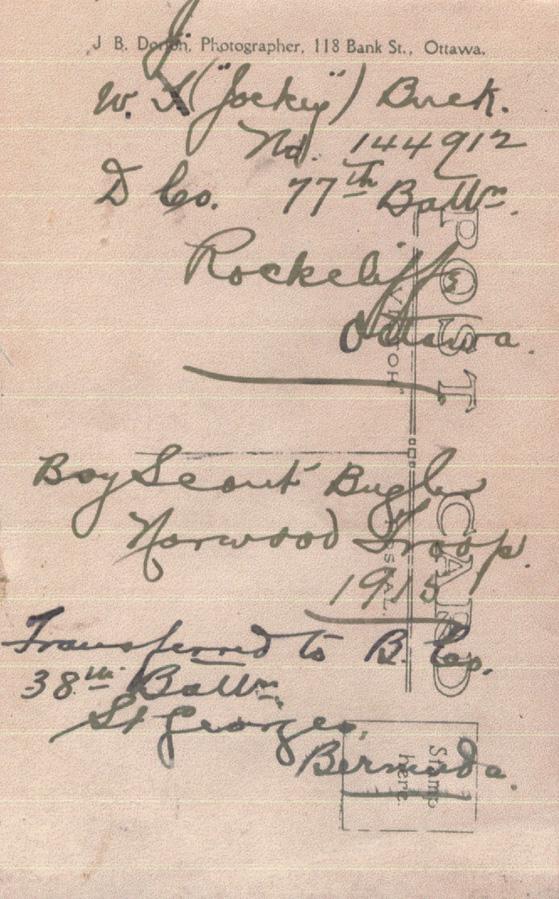 J. B. Dorion, Photographer, 118 Bank St., Ottawa.
W. J. ("Jockey") Buck.
No. 144912
D Co. 77th Battn.
Rockcliffe
Ottawa.
Boy Scout Bugler
Norwood Troop.
1915
Transferred to B. Co.
38th Battn.
St Georges,
Bermuda.
POST CARD
Stamp
here.